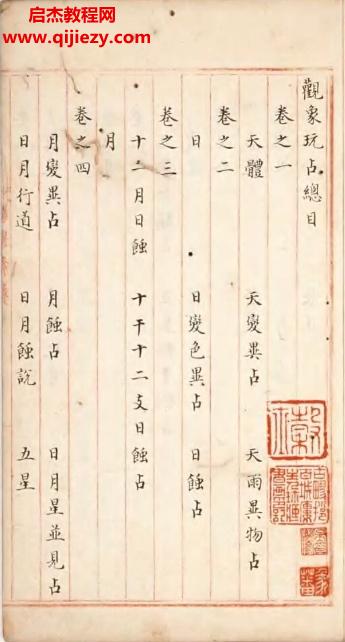 启杰教程网
www.qijiezy.com
觀象玩占總目
卷之一
天體 天變異占 天雨異物占
卷之二
日 日變色異占 日蝕占
卷之三
十二月日蝕 十干十二支日蝕占
月
卷之四
月變異占 月蝕占 日月星並見占
日月行道 日月蝕說 五星